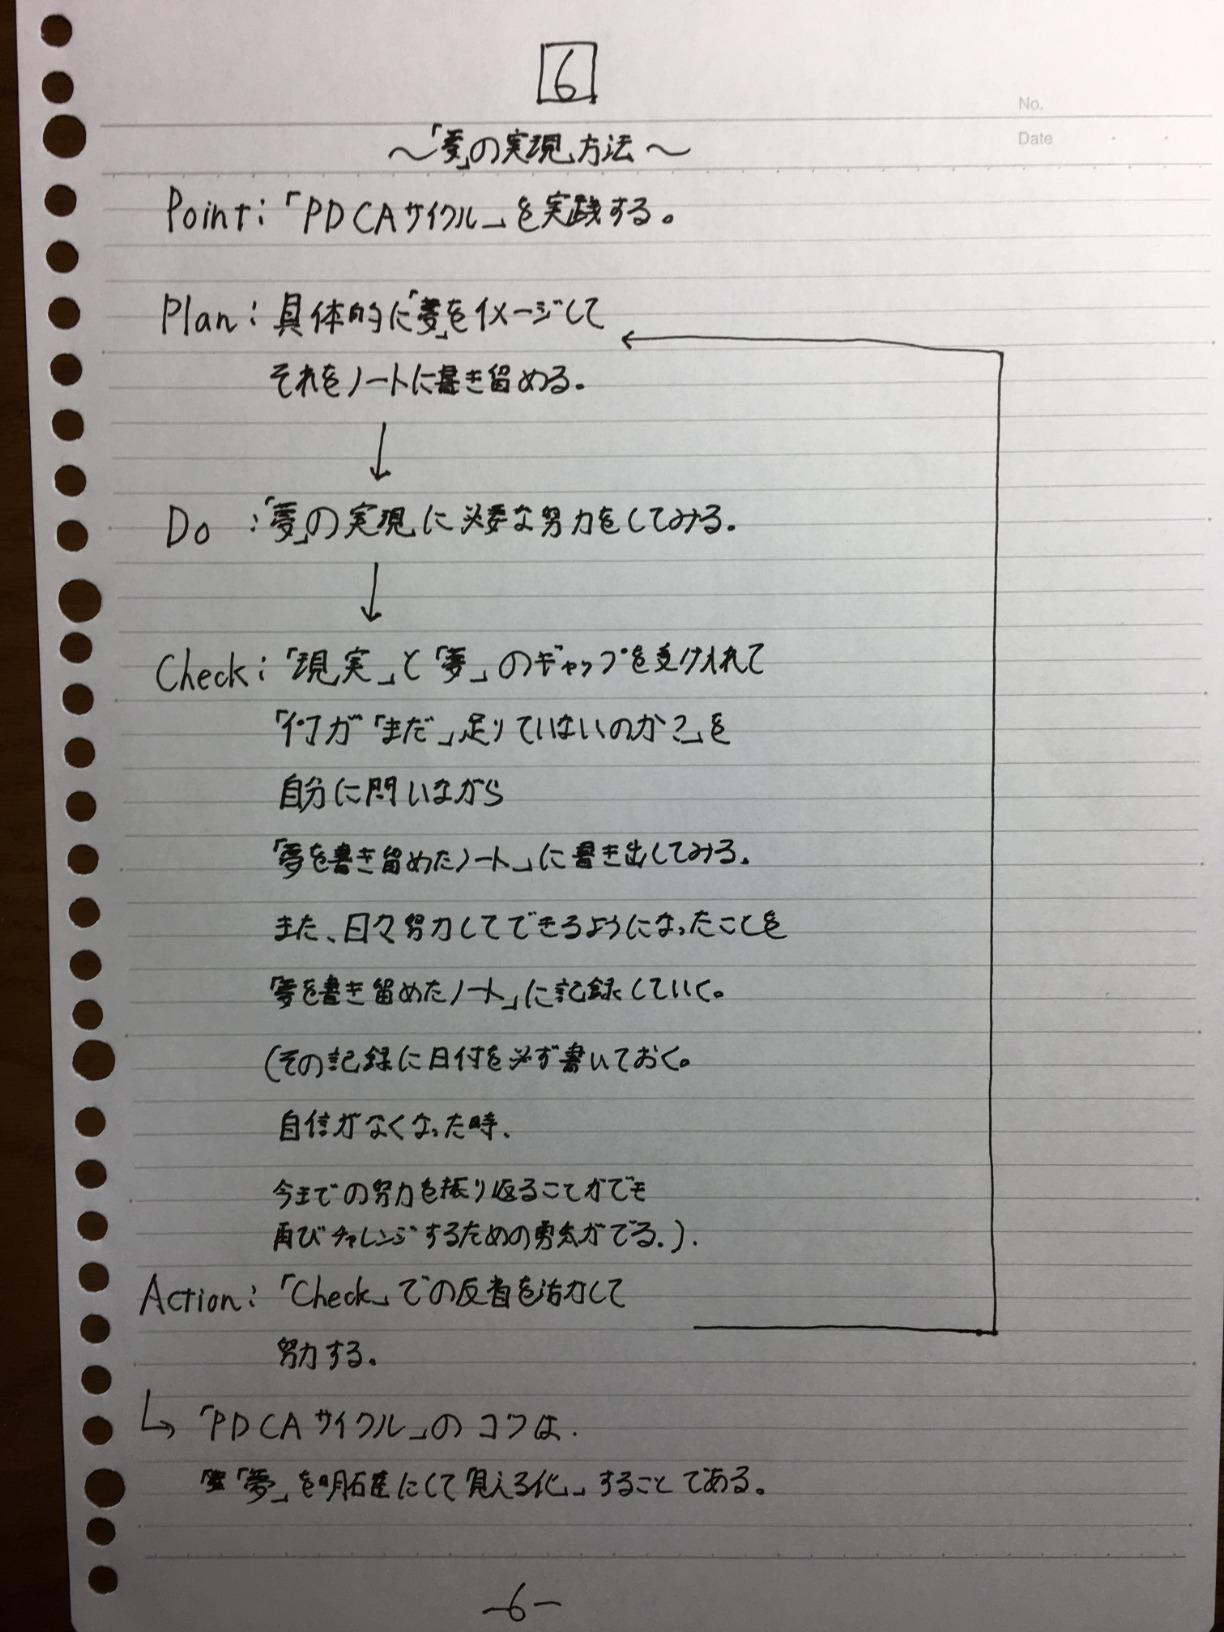 6
No.
Date
〜「夢」の実現方法〜
Point:「PDCAサイクル」を実践する。
Plan:具体的に「夢」をイメージして
それをノートに書き留める。
Do :「夢」の実現に必要な努力をしてみる。
Check:「現実」と「夢」のギャップを受け入れて
「何が「まだ」足りていないのか?」を
自分に問いながら
「夢を書き留めたノート」に書き出してみる。
また、日々努力してできるようになったことを
「夢を書き留めたノート」に記録していく。
(その記録に日付を必ず書いておく。
自信がなくなった時、
今までの努力を振り返ることができ
再びチャレンジするための勇気がでる。).
Action:「Check」での反省を活かして
努力する。
↳「PDCAサイクル」のコツは、
「夢」を明確にして「見える化」することである。
-6-